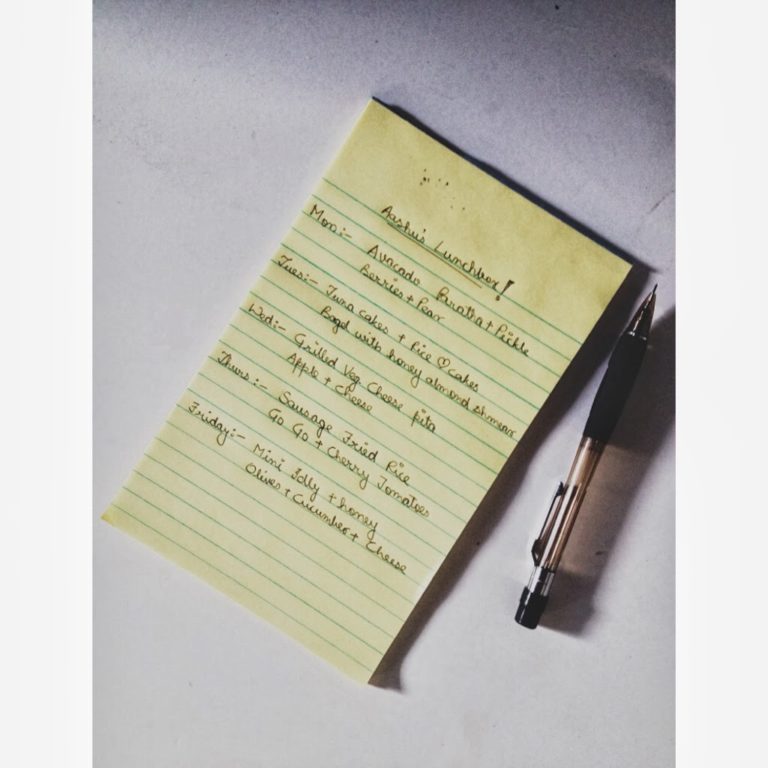 Aashu's Lunchbox!
Mon:- Avacado Paratha + Pickle
Berries + Pear
Tues:- Tuna cakes + Rice ♡ cakes
Bagel with honey almond shmear
Wed:- Grilled Veg Cheese pita
Apple + Cheese
Thurs:- Sausage Fried Rice
Go Go + Cherry Tomatoes
Friday:- Mini Idly + honey
Olives + Cucumber + Cheese